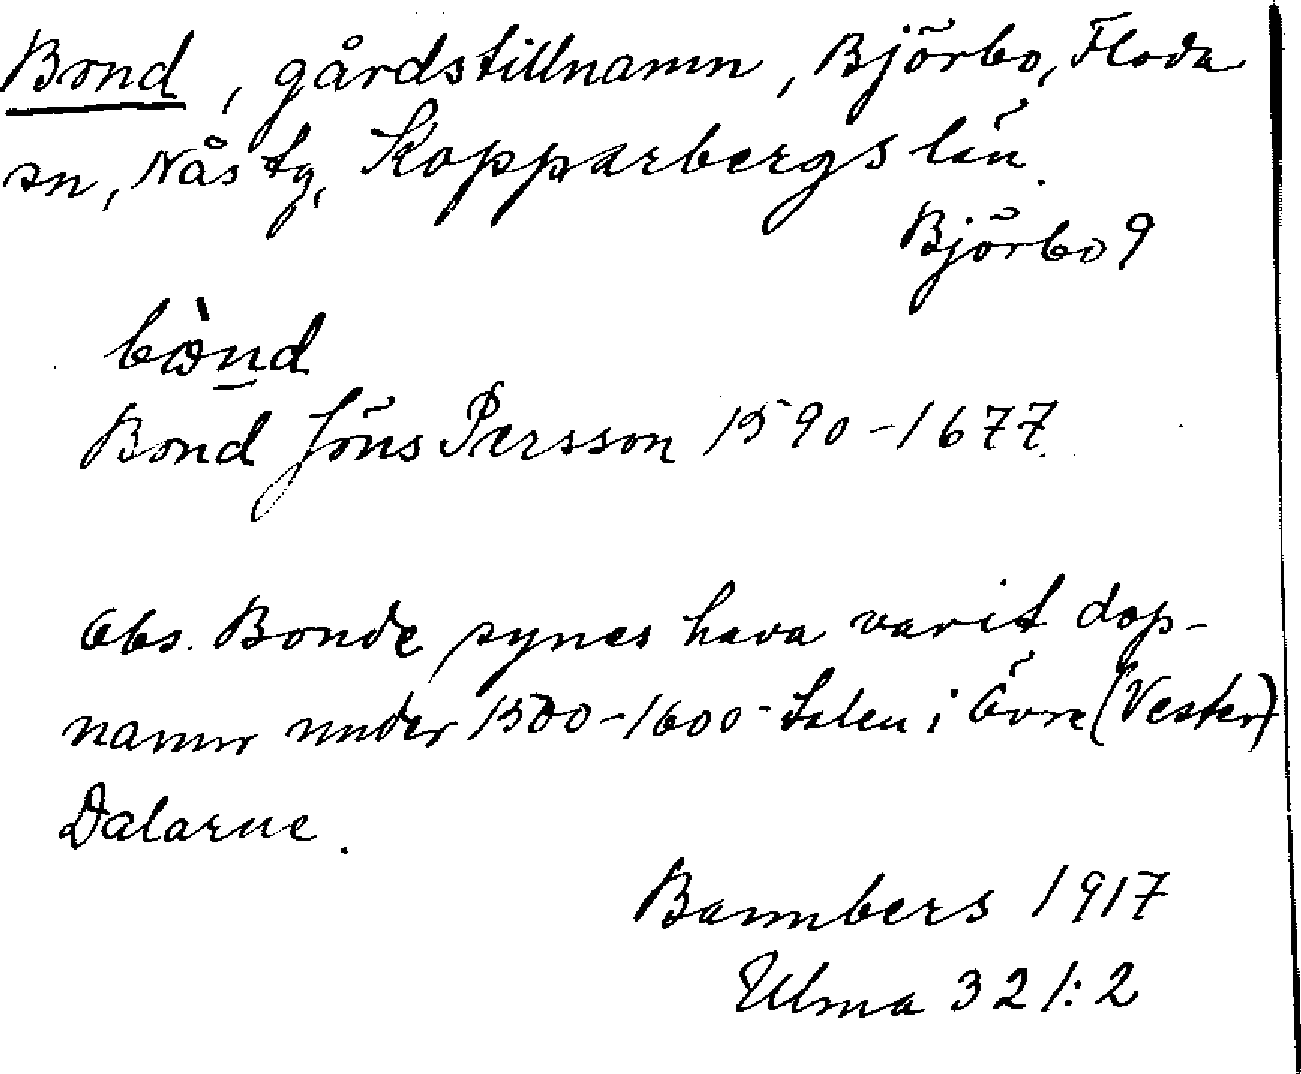 Bond, gårdstillnamn, Björbo, Floda
sn, Nås tg, Kopparbergs län.
Björbo 9
bònd
Bond Jöns Persson 1590-1677.
Obs. Bonde synes hava varit dop-
namn under 1500-1600-talen i Övre (Vester)
Dalarne.
Bannbers 1917
Ulma 321:2